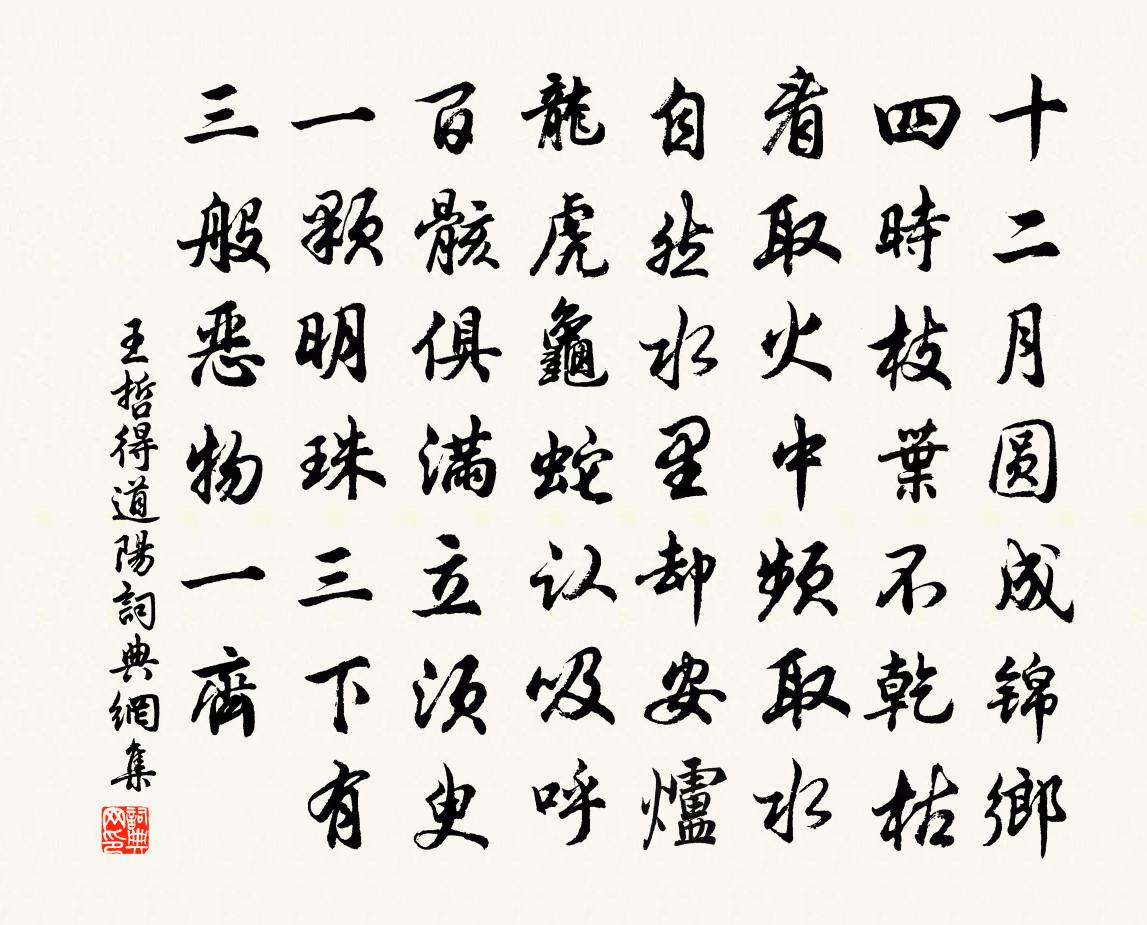 十二月圆成锦鄉
四時枝葉不乾枯
看取火中頻取水
自然水里却安爐
龍虎龜蛇认吸呼
百骸俱满立须臾
一顆明珠三下有
三般恶物一齊
王哲得道陽詞典網集
詞典网印